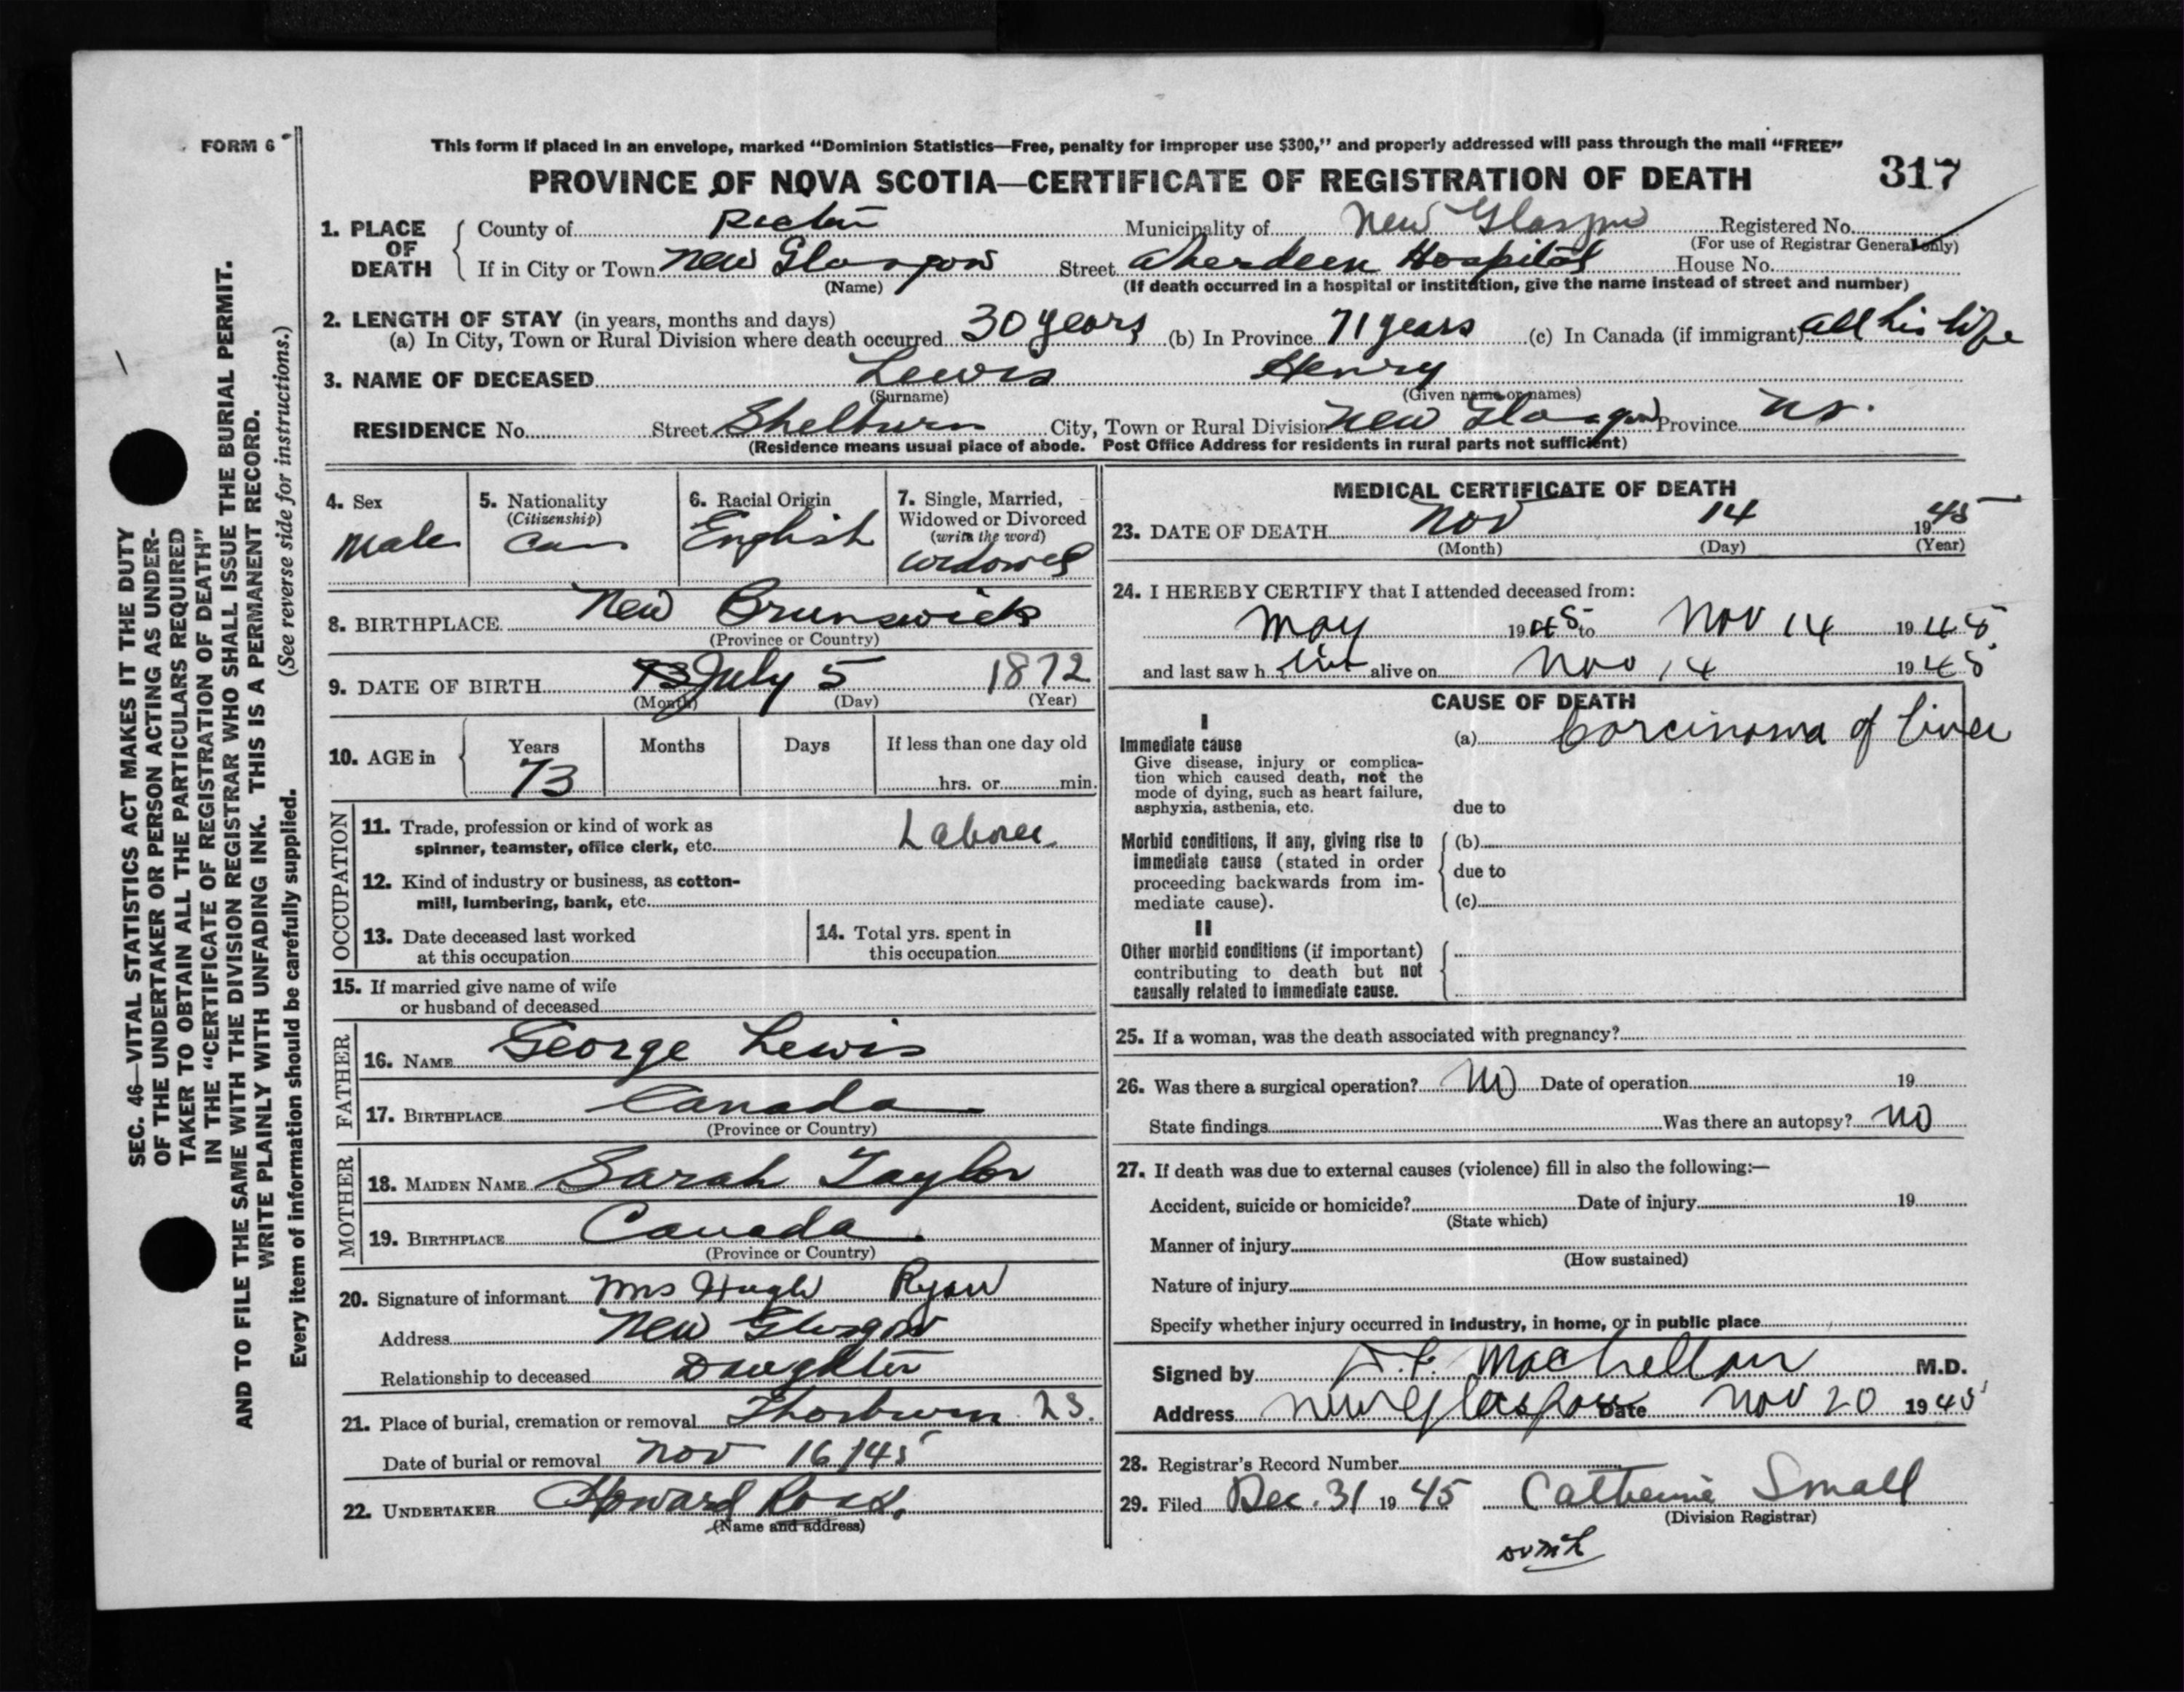 FORM 6
This form if placed in an envelope, marked “Dominion Statistics—Free, penalty for improper use $300,” and properly addressed will pass through the mail “FREE”
PROVINCE OF NOVA SCOTIA—CERTIFICATE OF REGISTRATION OF DEATH 317
1. PLACE OF DEATH County of Pictou Municipality of New Glasgow Registered No.
(For use of Registrar General only)
If in City or Town New Glasgow Street Aberdeen Hospital House No.
(Name) (If death occurred in a hospital or institution, give the name instead of street and number)
2. LENGTH OF STAY (in years, months and days)
(a) In City, Town or Rural Division where death occurred 30 years (b) In Province 71 years (c) In Canada (if immigrant) all his life
3. NAME OF DECEASED Lewis Henry
(Surname) (Given name or names)
RESIDENCE No. Street Shelburn City, Town or Rural Division New Glasgow Province NS.
(Residence means usual place of abode. Post Office Address for residents in rural parts not sufficient)
4. Sex
Male
5. Nationality
(Citizenship)
Can
6. Racial Origin
English
7. Single, Married,
Widowed or Divorced
(write the word)
widowed
8. BIRTHPLACE New Brunswick
(Province or Country)
9. DATE OF BIRTH 73 July 5 1872
(Month) (Day) (Year)
10. AGE in Years Months Days If less than one day old
73 hrs. or min.
OCCUPATION
11. Trade, profession or kind of work as
spinner, teamster, office clerk, etc. Laborer
12. Kind of industry or business, as cotton-
mill, lumbering, bank, etc.
13. Date deceased last worked
at this occupation
14. Total yrs. spent in
this occupation
15. If married give name of wife
or husband of deceased
FATHER
16. NAME George Lewis
17. BIRTHPLACE Canada
(Province or Country)
MOTHER
18. MAIDEN NAME Sarah Taylor
19. BIRTHPLACE Canada
(Province or Country)
20. Signature of informant Mrs Hugh Ryan
Address New Glasgow
Relationship to deceased Daughter
21. Place of burial, cremation or removal Thorburn
Date of burial or removal Nov 16/45
22. UNDERTAKER Howard Ross
(Name and address)
MEDICAL CERTIFICATE OF DEATH
23. DATE OF DEATH Nov 14 1945
(Month) (Day) (Year)
24. I HEREBY CERTIFY that I attended deceased from:
May 1945 to Nov 14 1945
and last saw h im alive on Nov 14 1945
CAUSE OF DEATH
I
Immediate cause (a) Carcinoma of liver
Give disease, injury or complica-
tion which caused death, not the
mode of dying, such as heart failure,
asphyxia, asthenia, etc. due to
Morbid conditions, if any, giving rise to (b)
immediate cause (stated in order
proceeding backwards from im- due to
mediate cause). (c)
II
Other morbid conditions (if important)
contributing to death but not
causally related to immediate cause.
25. If a woman, was the death associated with pregnancy?
26. Was there a surgical operation? No Date of operation 19
State findings Was there an autopsy? No
27. If death was due to external causes (violence) fill in also the following:—
Accident, suicide or homicide? Date of injury 19
(State which)
Manner of injury
(How sustained)
Nature of injury
Specify whether injury occurred in industry, in home, or in public place
Signed by MacLellan M.D.
Address New Glasgow Date Nov 20 1945
28. Registrar's Record Number
29. Filed Dec. 31 1945 Catherine Small
(Division Registrar)
SEC. 46—VITAL STATISTICS ACT MAKES IT THE DUTY
OF THE UNDERTAKER OR PERSON ACTING AS UNDER-
TAKER TO OBTAIN ALL THE PARTICULARS REQUIRED
IN THE “CERTIFICATE OF REGISTRATION OF DEATH”
AND TO FILE THE SAME WITH THE DIVISION REGISTRAR WHO SHALL ISSUE THE BURIAL PERMIT.
WRITE PLAINLY WITH UNFADING INK. THIS IS A PERMANENT RECORD.
Every item of information should be carefully supplied. (See reverse side for instructions.)